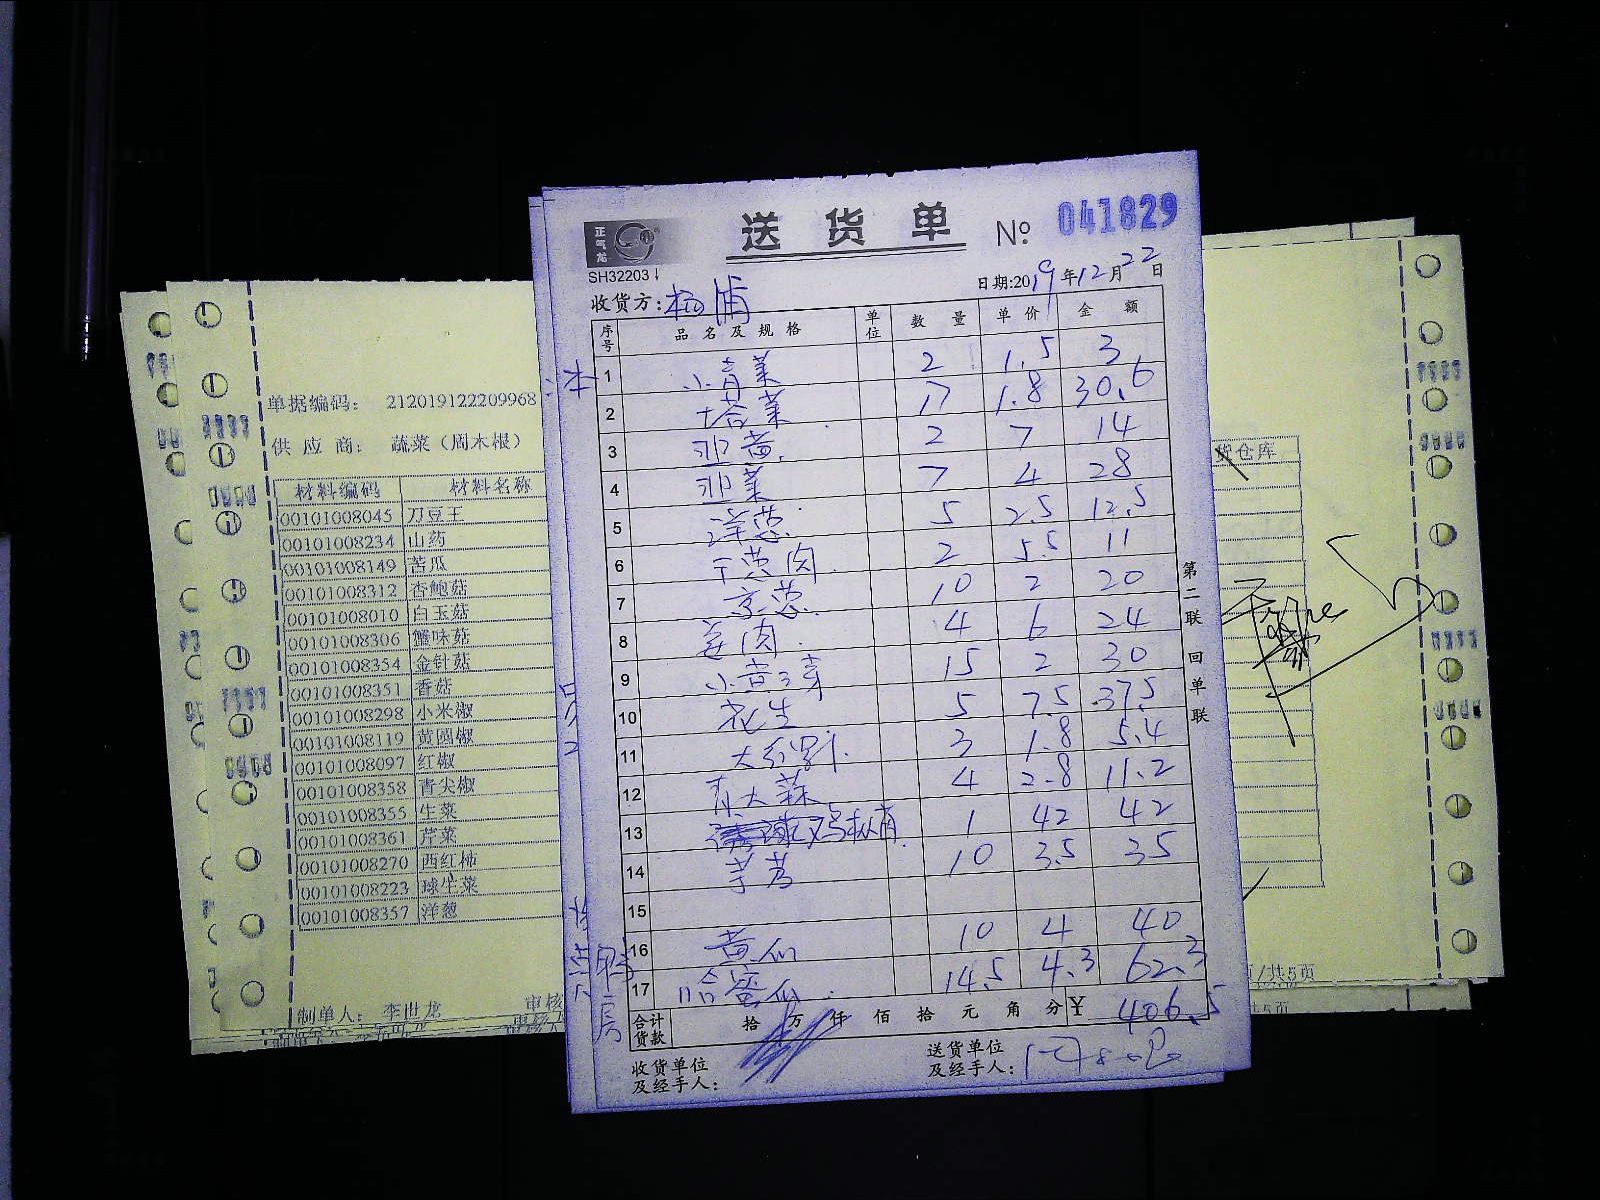 正气龙
SH32203
送货单 № 041829
日期:2019年12月22日
收货方:杨浦
序号 品名及规格 单位 数量 单价 金额
1 小青菜 2 1.5 3
2 塔菜 17 1.8 30.6
3 韭黄 2 7 14
4 韭菜 7 4 28
5 洋葱 5 2.5 12.5
6 干葱肉 2 5.5 11
7 京葱 10 2 20
8 姜肉 4 6 24
9 小黄豆芽 15 2 30
10 花生 5 7.5 37.5
11 3 1.8 5.4
12 大蒜 4 2.8 11.2
13 鸡枞菌 1 42 42
14 芋艿 10 3.5 35
15
16 黄瓜 10 4 40
17 哈蜜瓜 14.5 4.3 62.3
合计货款 拾万仟佰拾元角分 ¥ 406.5
收货单位及经手人:
送货单位及经手人:
第二联 回单联
单据编码: 212019122209968
供应商: 蔬菜(周木根)
材料编码 材料名称
00101008045 刀豆王
00101008234 山药
00101008149 苦瓜
00101008312 杏鲍菇
00101008010 白玉菇
00101008306 蟹味菇
00101008354 金针菇
00101008351 香菇
00101008298 小米椒
00101008119 黄圆椒
00101008097 红椒
00101008358 青尖椒
00101008355 生菜
00101008361 芹菜
00101008270 西红柿
00101008223 球生菜
00101008357 洋葱
制单人: 李世龙
审核
货仓库
页/共5页
共5页